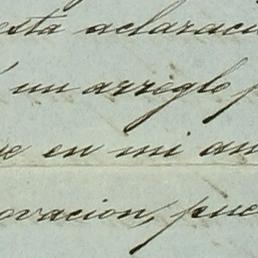 esta aclaraci
un arreglo p
ue en mi an
ovacion, pue